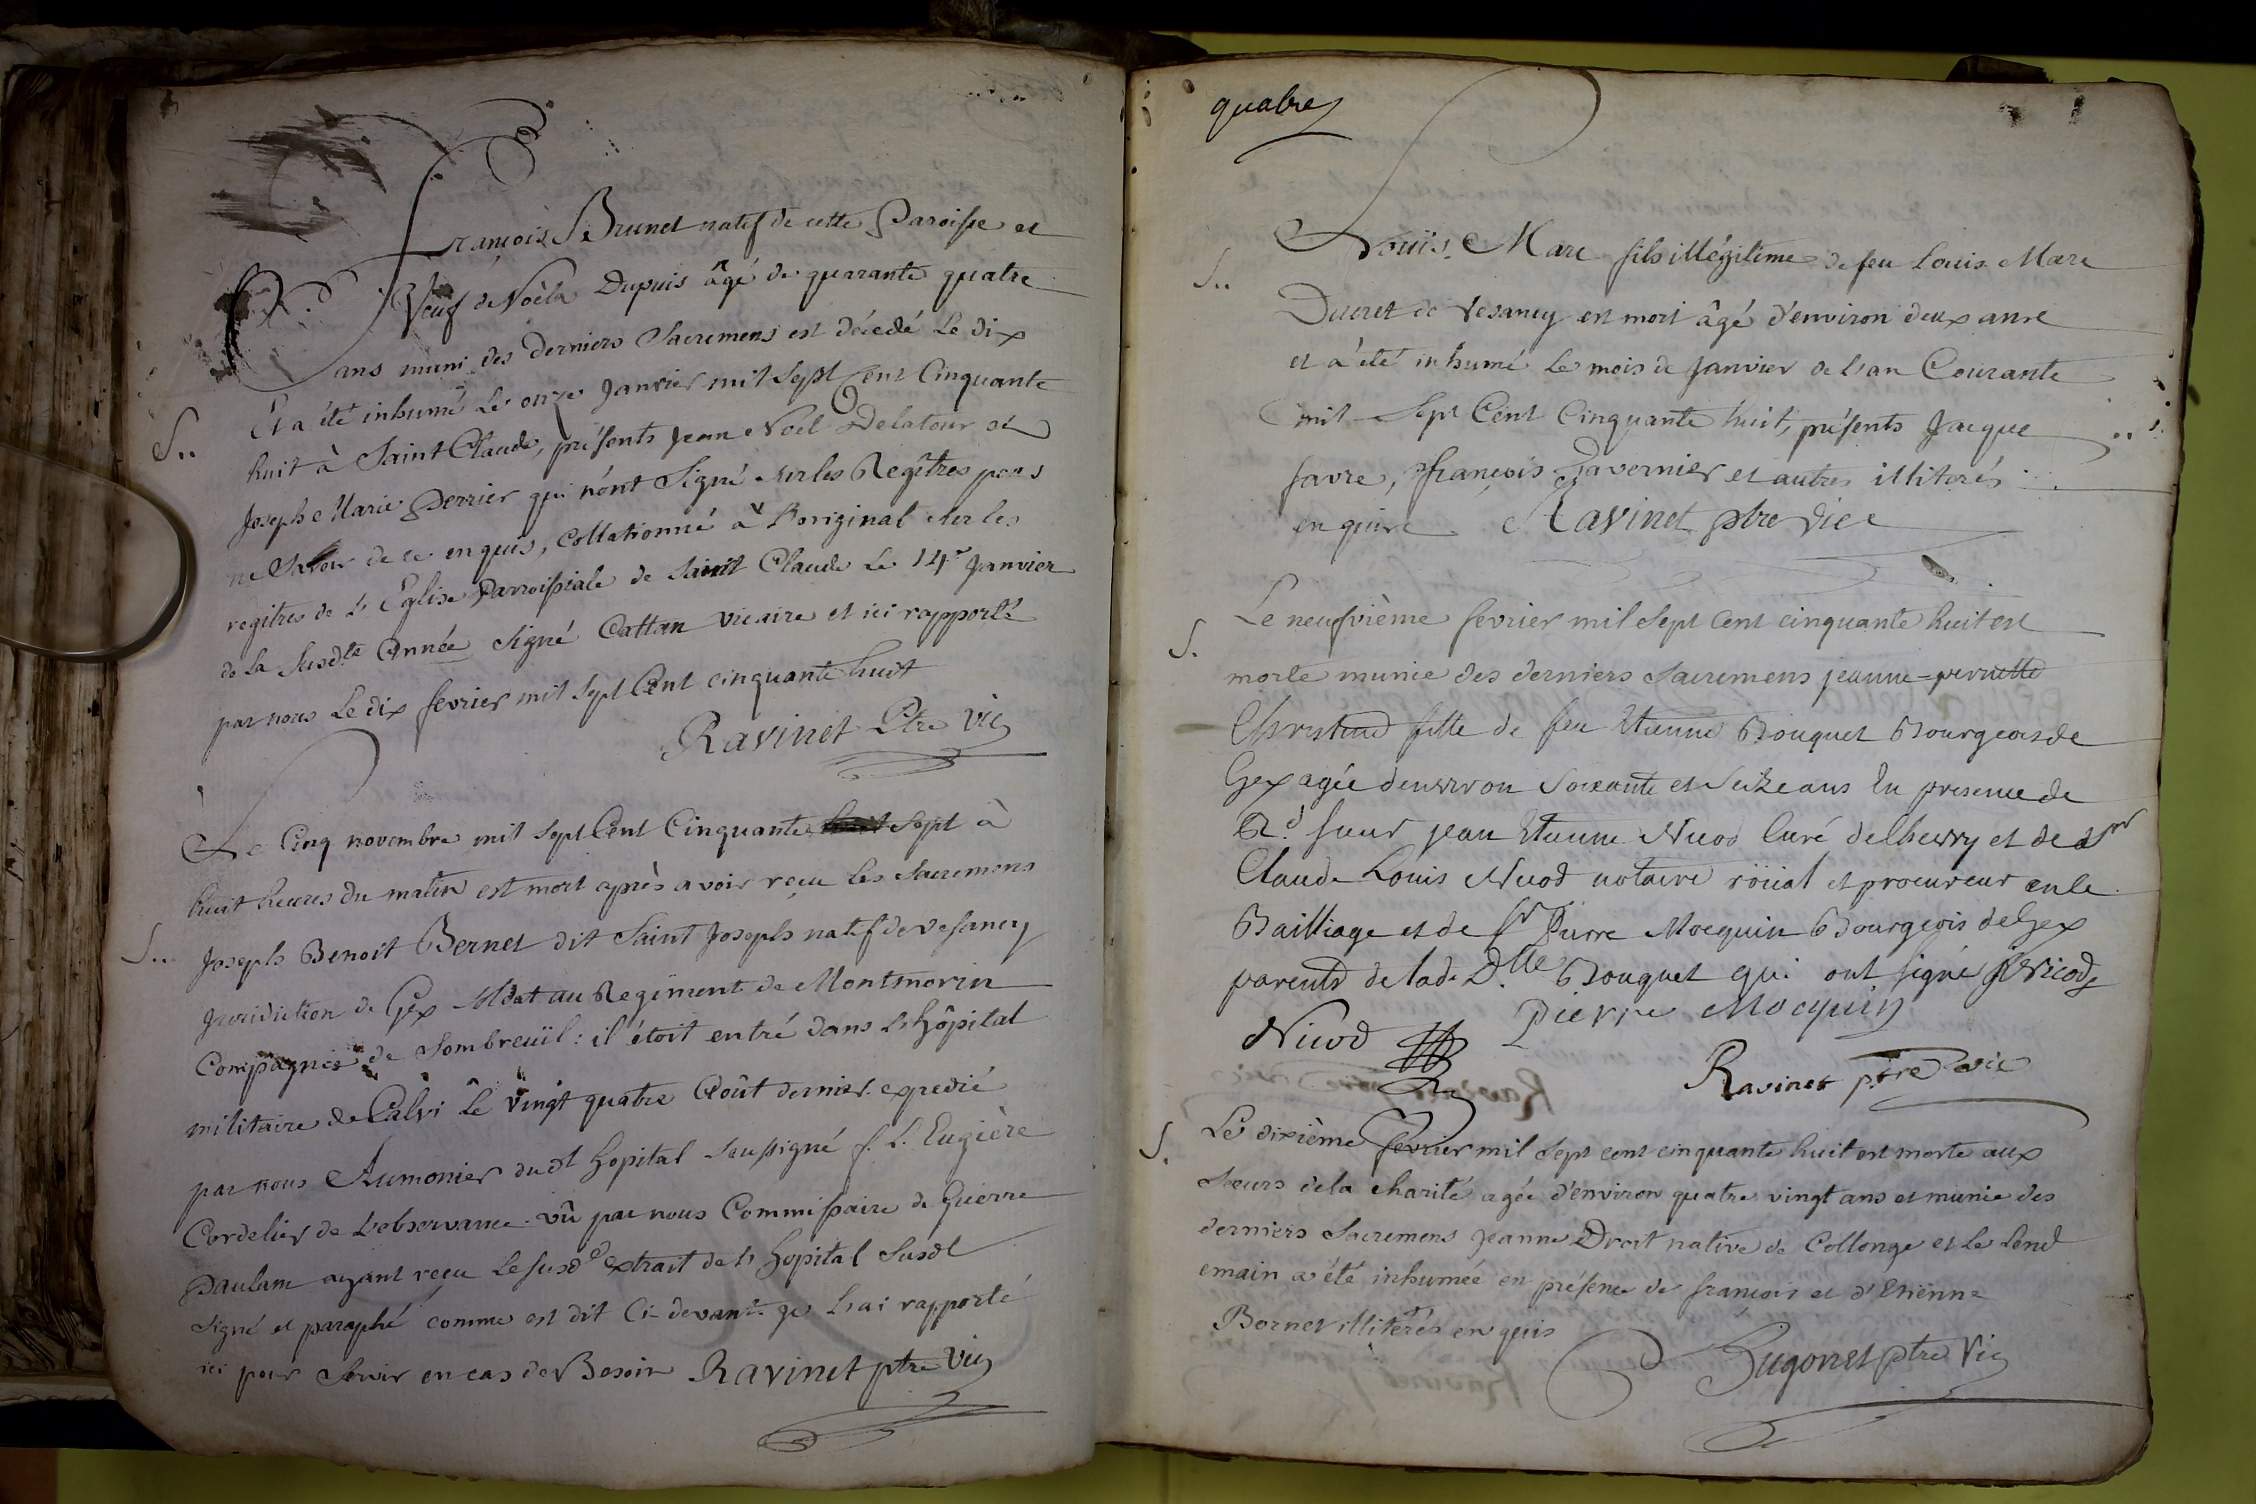 François Brunet natif de cette Paroisse et
Veuf de Noëla Dupuis âgé de quarante quatre
ans muni des derniers Sacremens est décedé Le dix
Et a été inhumé Le onze Janvier mil Sept Cent Cinquante
huit à Saint Claude, présents Jean Noël Delatour et
Joseph Marie Perrier qui n'ont Signé sur les Regîtres pour
ne Savoir de ce enquis, Collationné à L'original sur les
regitres de L'Eglise Parroissiale de Saint Claude Le 14e Janvier
de La Susd.te Année Signé Cattan vicaire et ici rapporté
par nous Le dix fevrier mil Sept Cent cinquante huit
Ravinet Ptre Vic
S..
Le Cinq novembre mil Sept Cent Cinquante Sept à
huit heures du matin est mort après avoir reçu les Sacremens
Joseph Benoit Bernet dit Saint Joseph natif de vesancy
Juridiction de Gex Sldat au Regiment de Montmorin
Compagnie de Sombreüil : il étoit entré dans L'hôpital
militaire de Calvi Le vingt quatre Août dernier. expedié
par nous Aumonier dudt hopital Soussigné f. L. Eugière
Cordelier de L'observance. vû par nous Commissaire de Guerre
Paulam ayant reçu Le susd.e extrait de L'hopital Susdt
signé et paraphé comme est dit Ci-devant. je L'ai rapporté
ici pour Servir en cas de Besoin Ravinet ptre Vic
S..
quatre
S..
Louis Marc fils illégitime de feu Louis Marc
Ducret de Vesancy est mort âgé d'environ deux ans
et a été inhumé Le mois de Janvier de L'an Courante
mil Sept Cent Cinquante huit, présents Jacque
favre, françois Tavernier et autres illiterés
enquire Ravinet ptre Vice
S.
Le neufvième fevrier mil Sept Cent cinquante huit est
morte munie des derniers Sacremens jeanne=pernette
Christine fille de feu Etienne Bouquet Bourgeois de
Gex agée denviron Soixante et Seize ans En presence de
R.d sieur jean Etienne Nicod Curé de Chevry et de Sr
Claude Louis Nicod notaire röial et procureur en le
Bailliage et de Sr Pierre Mocquin Bourgeois de Gex
parents de lad. Dlle Bouquet qui ont signé Nicod
Nicod Pierre Mocquin
Ravinet ptre vic
S.
Le dixième fevrier mil Sept cent cinquante huit est morte aux
Soeurs de la charité agée d'environ quatre vingt ans et munie des
derniers Sacremens Jeanne Droit native de Collonge et Le Lend
emain a été inhumée en présence de françois et d'Etiènne
Bornet illiterés enquis
Hugonnet ptre Vic